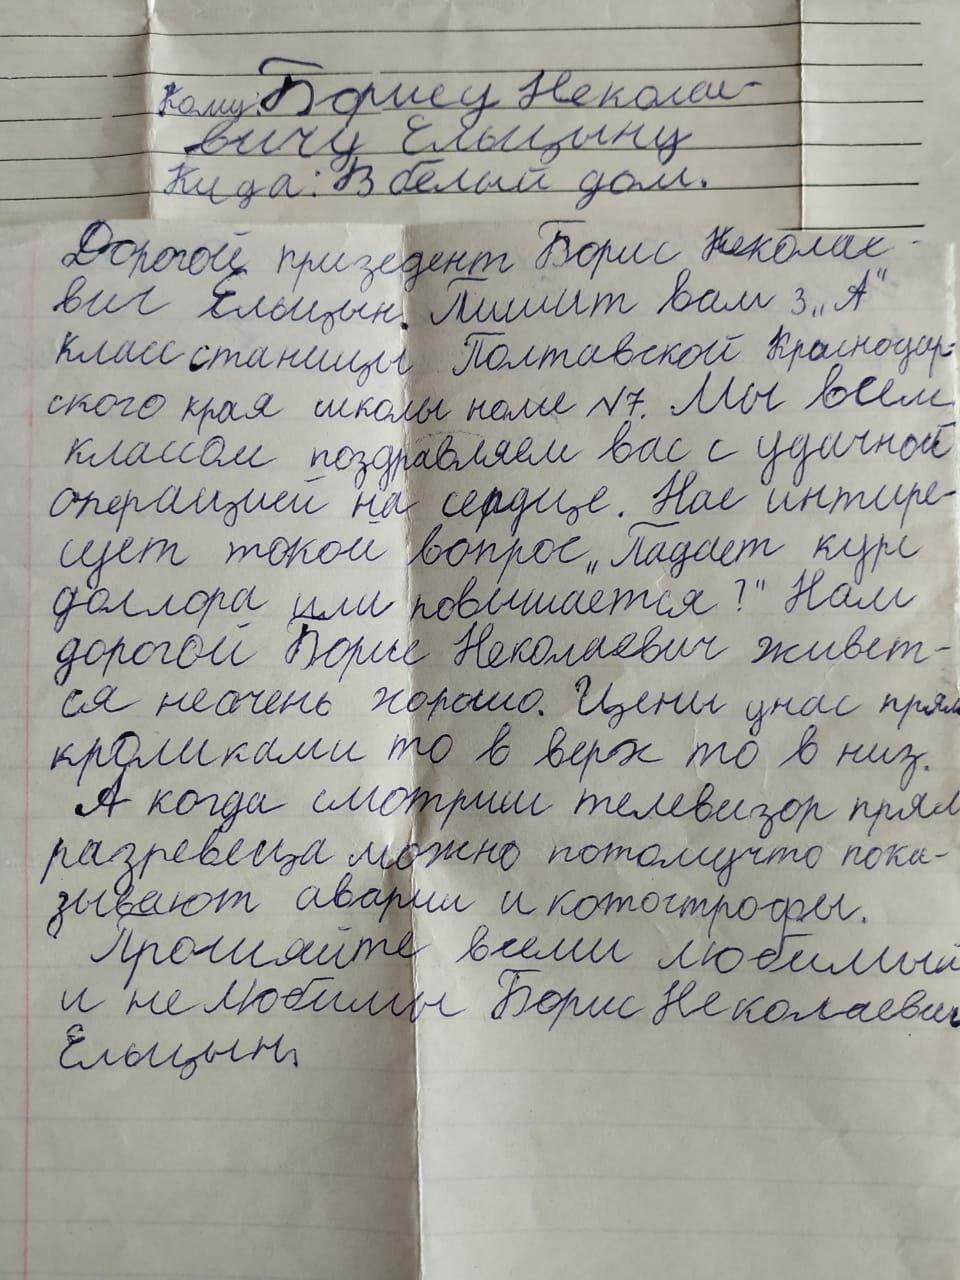 Кому: Борису Неколае-
вичу Ельцыну
Куда: В белый дом.
Дорогой призедент Борис Неколае-
вич Ельцын. Пишит вам 3 „А"
класс станицы Полтавской Краснодар-
ского края школы номе №7. Мы всем
классом поздравляем вас с удачной
операцией на сердце. Нас интире-
сует токой вопрос „Падает курс
доллора или повышается?" Нам
дорогой Борис Неколаевич живет-
ся неочень хорошо. Цены унас прям
кроликами то в верх то в низ.
А когда смотриш телевизор прям
разревеца можно потомучто пока-
зывают аварии и котострофы.
Прощяйте всеми любимый
и не любимы Борис Неколаевич
Ельцын.